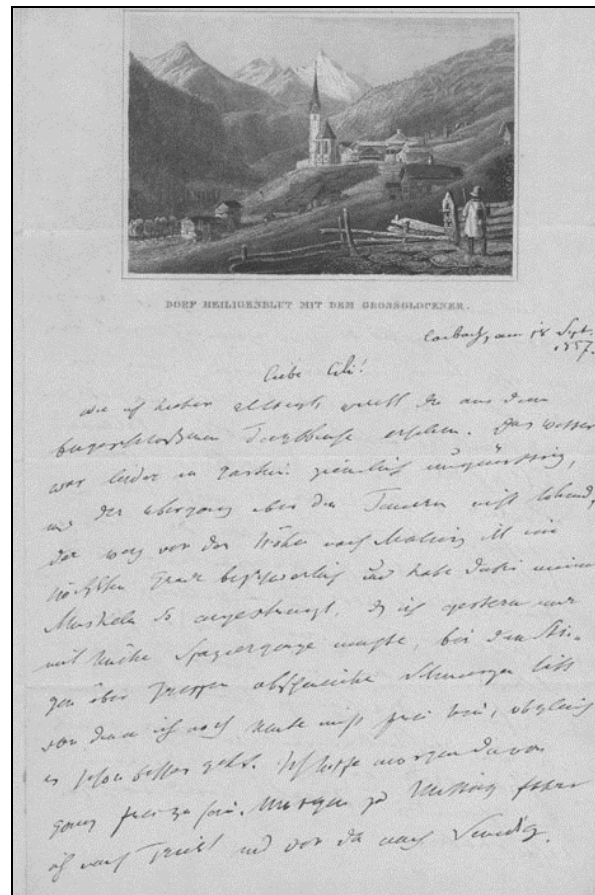 DORF HEILIGENBLUT MIT DEM GROSSGLOCKNER.
Laibach, am 18 Sept.
1857.
liebe Cili!
wie ich hieher gelangt, wirst du aus dem
beigeschlossenen erfahren. Das Wetter
war leider in Gastein ziemlich ungünstig,
und der Übergang über den Tauern nicht lohnend,
der Weg von der Höhe nach Malnitz ist im
höchsten Grad beschwerlich und habe dabei meine
Muskeln so angestrengt, ich gestern nur
mit Mühe Spaziergänge machte, bei dem Stei-
gen über Treppen abscheuliche Schmerzen litt
von denen ich noch heute nicht frei bin, obgleich
es schon besser geht. Ich hoffe morgen davon
ganz frei zu sein. Morgen zu Mittag fahre
ich nach Triest und von da nach Venedig.